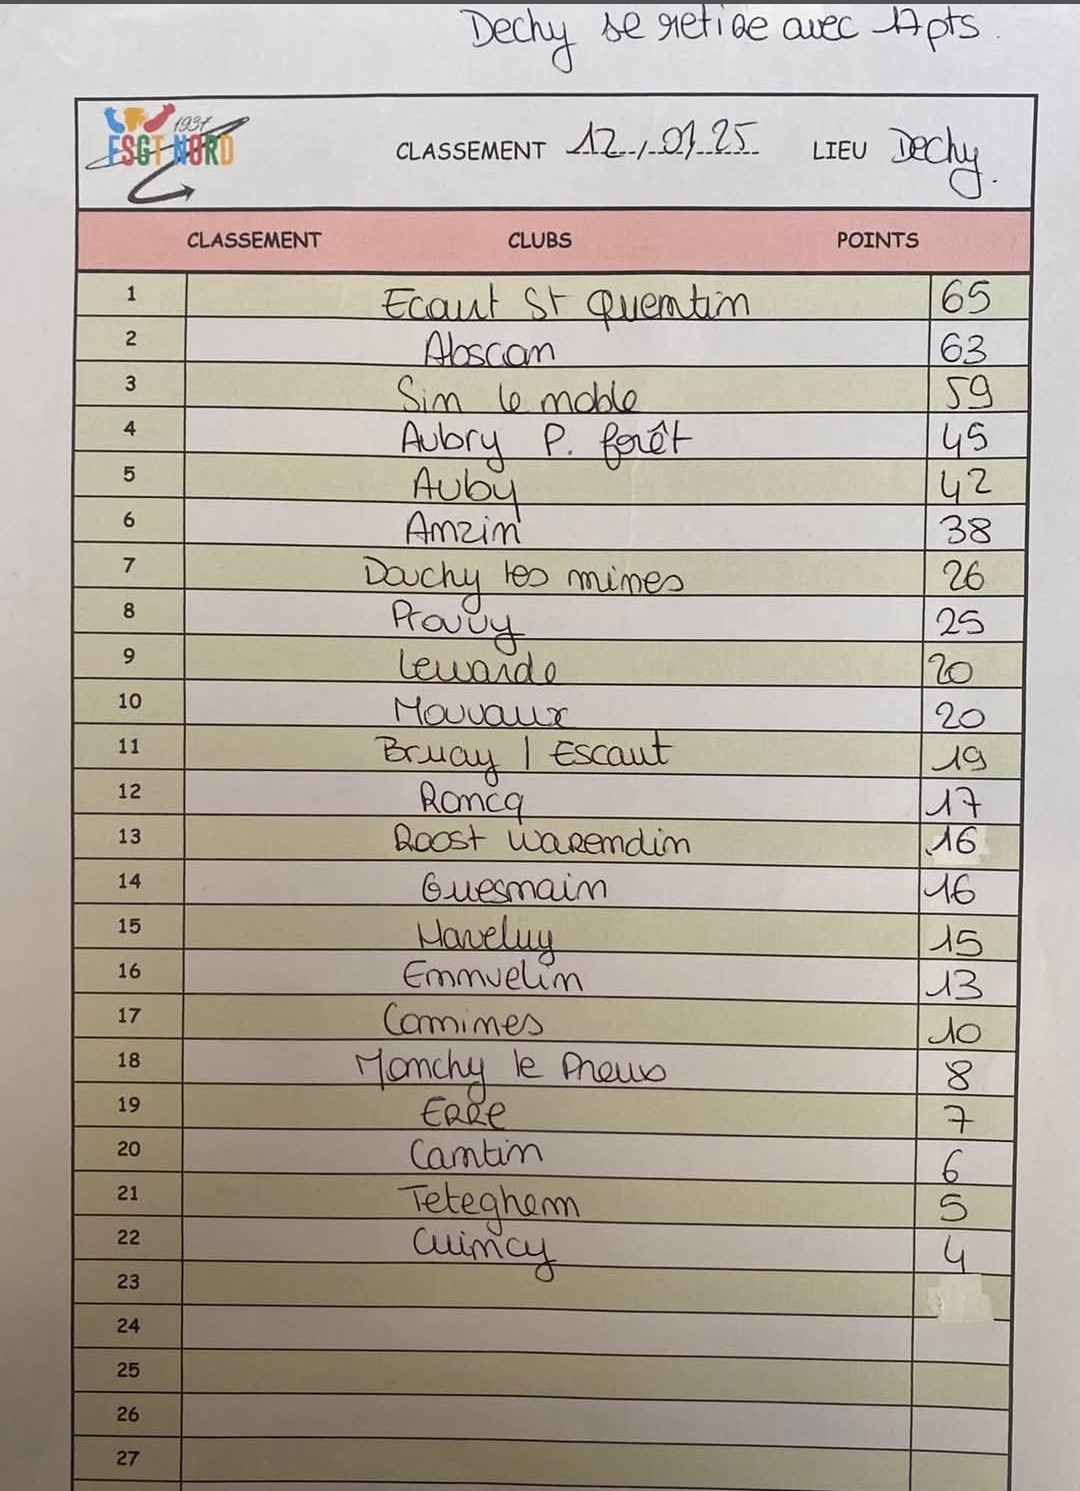 Dechy se retire avec 17 pts.
1937
FSGT NORD
CLASSEMENT 12/01/25 LIEU Dechy.
CLASSEMENT CLUBS POINTS
1 Ecaut St Quentin 65
2 Abscon 63
3 Sin le noble 59
4 Aubry P. forêt 45
5 Auby 42
6 Anzin 38
7 Douchy les mines 26
8 Prouvy 25
9 Lewarde 20
10 Mouvaux 20
11 Bruay / Escaut 19
12 Roncq 17
13 Roost Warendin 16
14 Guesnain 16
15 Haveluy 15
16 Ennvelin 13
17 Comines 10
18 Monchy le Preux 8
19 Erre 7
20 Cantin 6
21 Teteghem 5
22 Cuincy 4
23
24
25
26
27